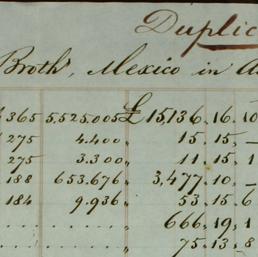 Duplic
Broth', Mexico in A
365 5,525.005 £ 15,136.16.10
275 4.400 " 15.15,—
275 3.300 " 11.15,1
188 653.676 " 3,477.10,—
184 9.936 " 53.15.6
666,19,1
75.13,8